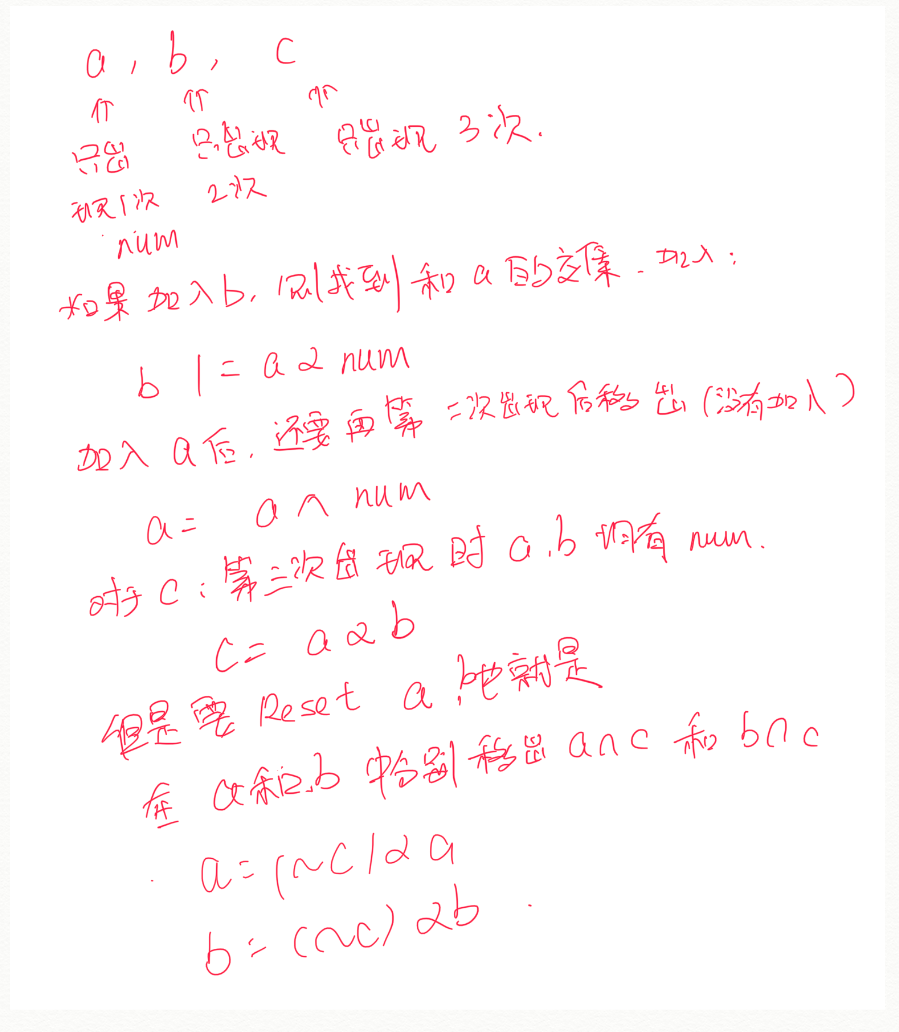 a, b, c
↑ ↑ ↑
只出 只出现 只出现 3次.
现1次 2次
num
如果加入b, 则找到和a的交集. 加入:
b |= a & num
加入a后, 还要再第二次出现后移出(没有加入)
a = a ^ num
对于c: 第三次出现时a,b均有num.
c = a & b
但是要Reset a,b也就是
在a和b中分别移出a∩c和b∩c
a = (~c) & a
b = (~c) & b.